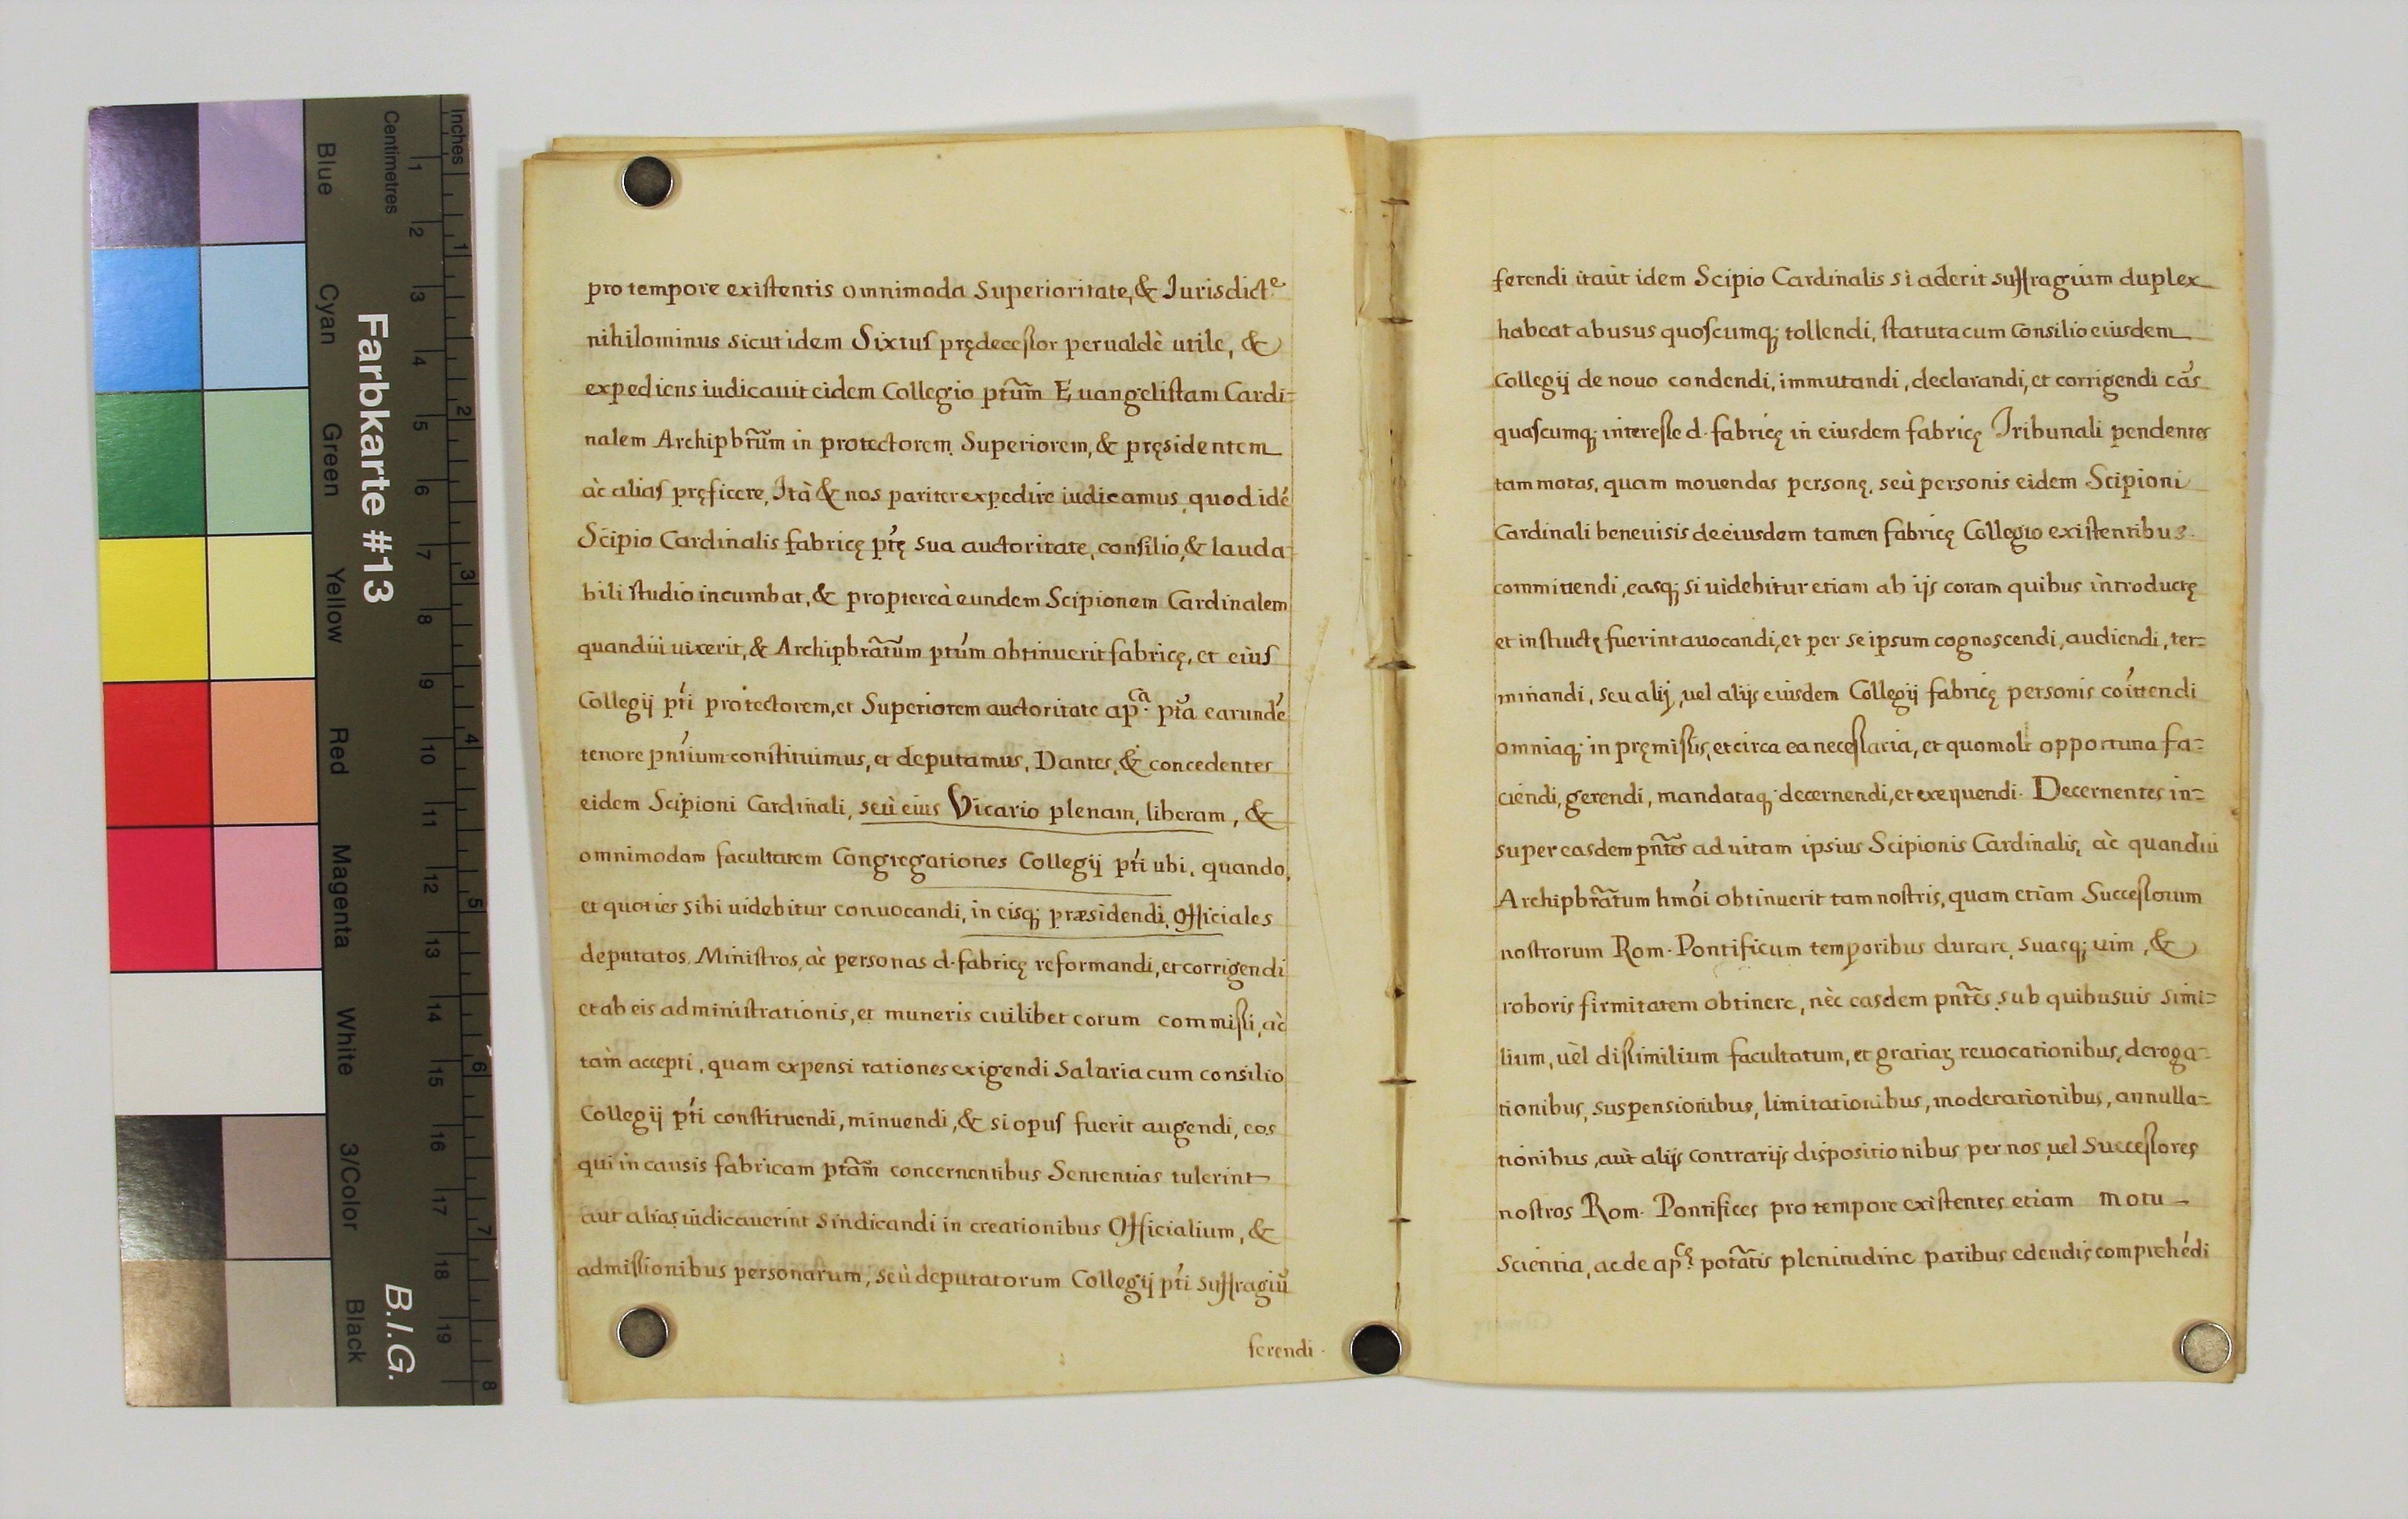 Blue
Cyan
Green
Yellow
Red
Magenta
White
3/Color
Black
Farbkarte #13
B.I.G.
Centimetres
1 2 3 4 5 6 7 8 9 10 11 12 13 14 15 16 17 18 19
Inches
1 2 3 4 5 6 7 8
pro tempore existentis omnimoda Superioritate, & Jurisdict.e
nihilominus sicut idem Sixtus prędecessor perualdè utile, &
expediens iudicauit eidem Collegio pt̃um Euangelistam Cardi=
nalem Archipbr̃um in protectorem, Superiorem, & pręsidentem
àc alias pręficere, Ità & nos pariter expedire iudicamus, quod idé
Scipio Cardinalis fabricę pt̃ę sua auctoritate, consilio, & lauda=
bili studio incumbat, & proptereà eundem Scipionem Cardinalem
quandiù uixerit, & Archipbr̃atum pt̃um obtinuerit fabricę, et eius
Collegij pt̃i protectorem, et Superiorem auctoritate ap.ca pt̃a earundé
tenore pñtium constituimus, et deputamus, Dantes, & concedentes
eidem Scipioni Cardinali, seù eius Vicario plenam, liberam, &
omnimodam facultatem Congregationes Collegij pt̃i ubi, quando,
et quoties sibi uidebitur conuocandi, in eisq; præsidendi, Officiales
deputatos, Ministros, àc personas d. fabricę reformandi, et corrigendi
et ab eis administrationis, et muneris cuilibet eorum commissi, àc
tam accepti, quam expensi rationes exigendi Salaria cum consilio
Collegij pt̃i constituendi, minuendi, & si opus fuerit augendi, eos
qui in causis fabricam pt̃am concernentibus Sententias tulerint
aut alias iudicauerint sindicandi in creationibus Officialium, &
admissionibus personarum, seù deputatorum Collegij pt̃i suffragiũ
ferendi.
ferendi itaut idem Scipio Cardinalis si aderit suffragium duplex
habeat abusus quoscumq; tollendi, statuta cum Consilio eiusdem
Collegij de nouo condendi, immutandi, declarandi, et corrigendi cãs
quascumq; interesse d. fabricę in eiusdem fabricę Tribunali pendentes
tam motas, quam mouendas personę, seù personis eidem Scipioni
Cardinali beneuisis de eiusdem tamen fabricę Collegio existentibus
committendi, easq; si uidebitur etiam ab ijs coram quibus introductę
et instructę fuerint auocandi, et per se ipsum cognoscendi, audiendi, ter=
minandi, seu alij, uel alijs eiusdem Collegij fabricę personis coĩttendi
omniaq; in pręmissis, et circa ea necessaria, et quomolt opportuna fa=
ciendi, gerendi, mandataq; decernendi, et exequendi. Decernentes in=
super easdem pñtes ad uitam ipsius Scipionis Cardinalis, àc quandiu
Archipbr̃atum hmõi obtinuerit tam nostris, quam etiam Successorum
nostrorum Rom. Pontificum temporibus durare, suasq; uim, &
roboris firmitatem obtinere, nèc easdem pñtes sub quibusuis simi=
lium, uèl dissimilium facultatum, et gratiaꝝ reuocationibus, deroga=
tionibus, suspensionibus, limitationibus, moderationibus, annulla=
tionibus, aùt alijs contrarijs dispositionibus per nos, uel Successores
nostros Rom. Pontifices pro tempore existentes etiam motu
scientia, ac de ap.cę potãtis plenitudine paribus edendis comprehédi